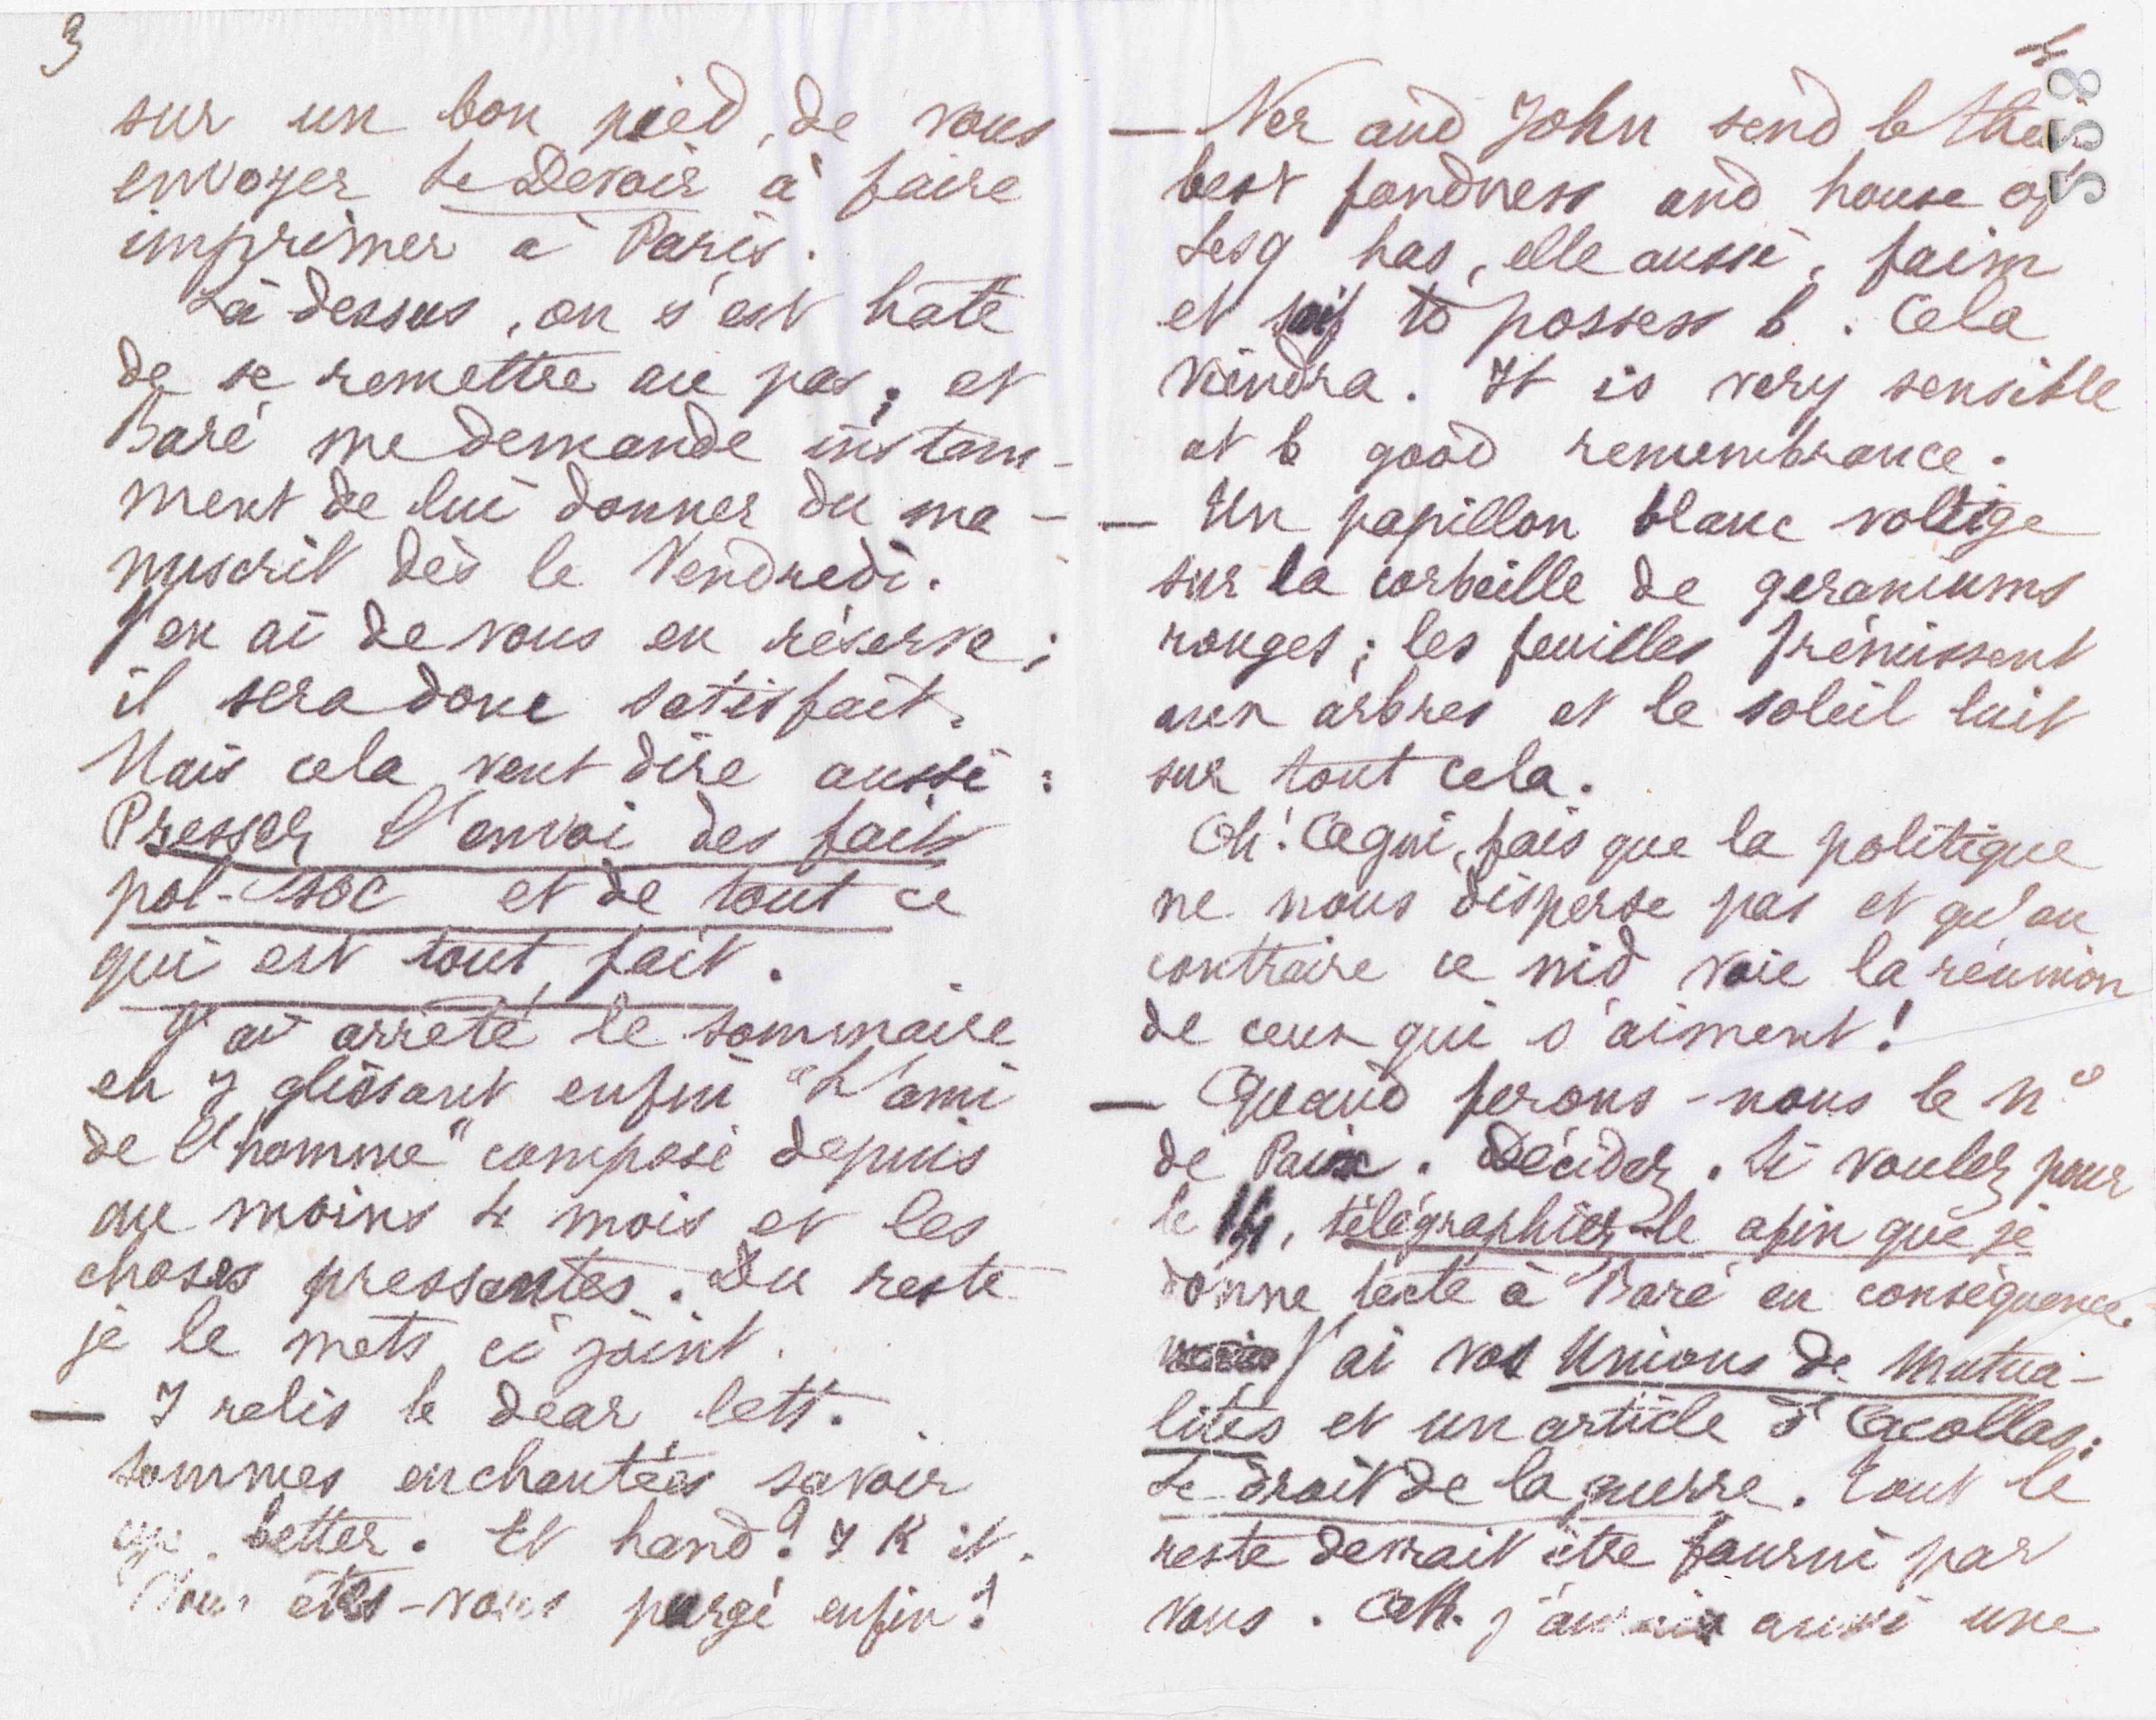 3
sur un bon pied, de vous
envoyer Le Devoir à faire
imprimer à Paris.
Là dessus, on s'est hâté
de se remettre au pas; et
Baré me demande instam-
ment de lui donner du ma-
nuscrit dès le Vendredi.
J'en ai de vous en réserve;
il sera donc satisfait.
Mais cela veut dire aussi :
Presser l'envoi des faits
pol-soc et de tout ce
qui est tout fait.
J'ai arrêté le sommaire
en y glissant enfin "L'ami
de l'homme" composé depuis
au moins 4 mois et les
choses pressantes. Du reste
je le mets ci joint.
— I relis le dear lett.
Sommes enchantées savoir
better. Et hand? I K it.
Vous êtes-vous purgé enfin?
4
558
— Ner and John send b their
best fondness and house of
Lesq has, elle aussi, faim
et soif to possess b. Cela
viendra. It is very sensible
at b good remembrance.
— Un papillon blanc voltige
sur la corbeille de geraniums
rouges; les feuilles frémissent
aux arbres et le soleil luit
sur tout cela.
Oh! Cequi, fais que la politique
ne nous disperse pas et qu'au
contraire ce nid voie la réunion
de ceux qui s'aiment!
— Quand ferons-nous le no
de Paix. Décidez. Si voulez pour
le 14, télégraphiez-le afin que je
donne texte à Baré en conséquence.
J'ai vos Unions de Mutua-
lités et un article d'Acollas:
Le droit de la guerre. Tout le
reste devrait être fourni par
vous. Ah. j'aurais aussi une